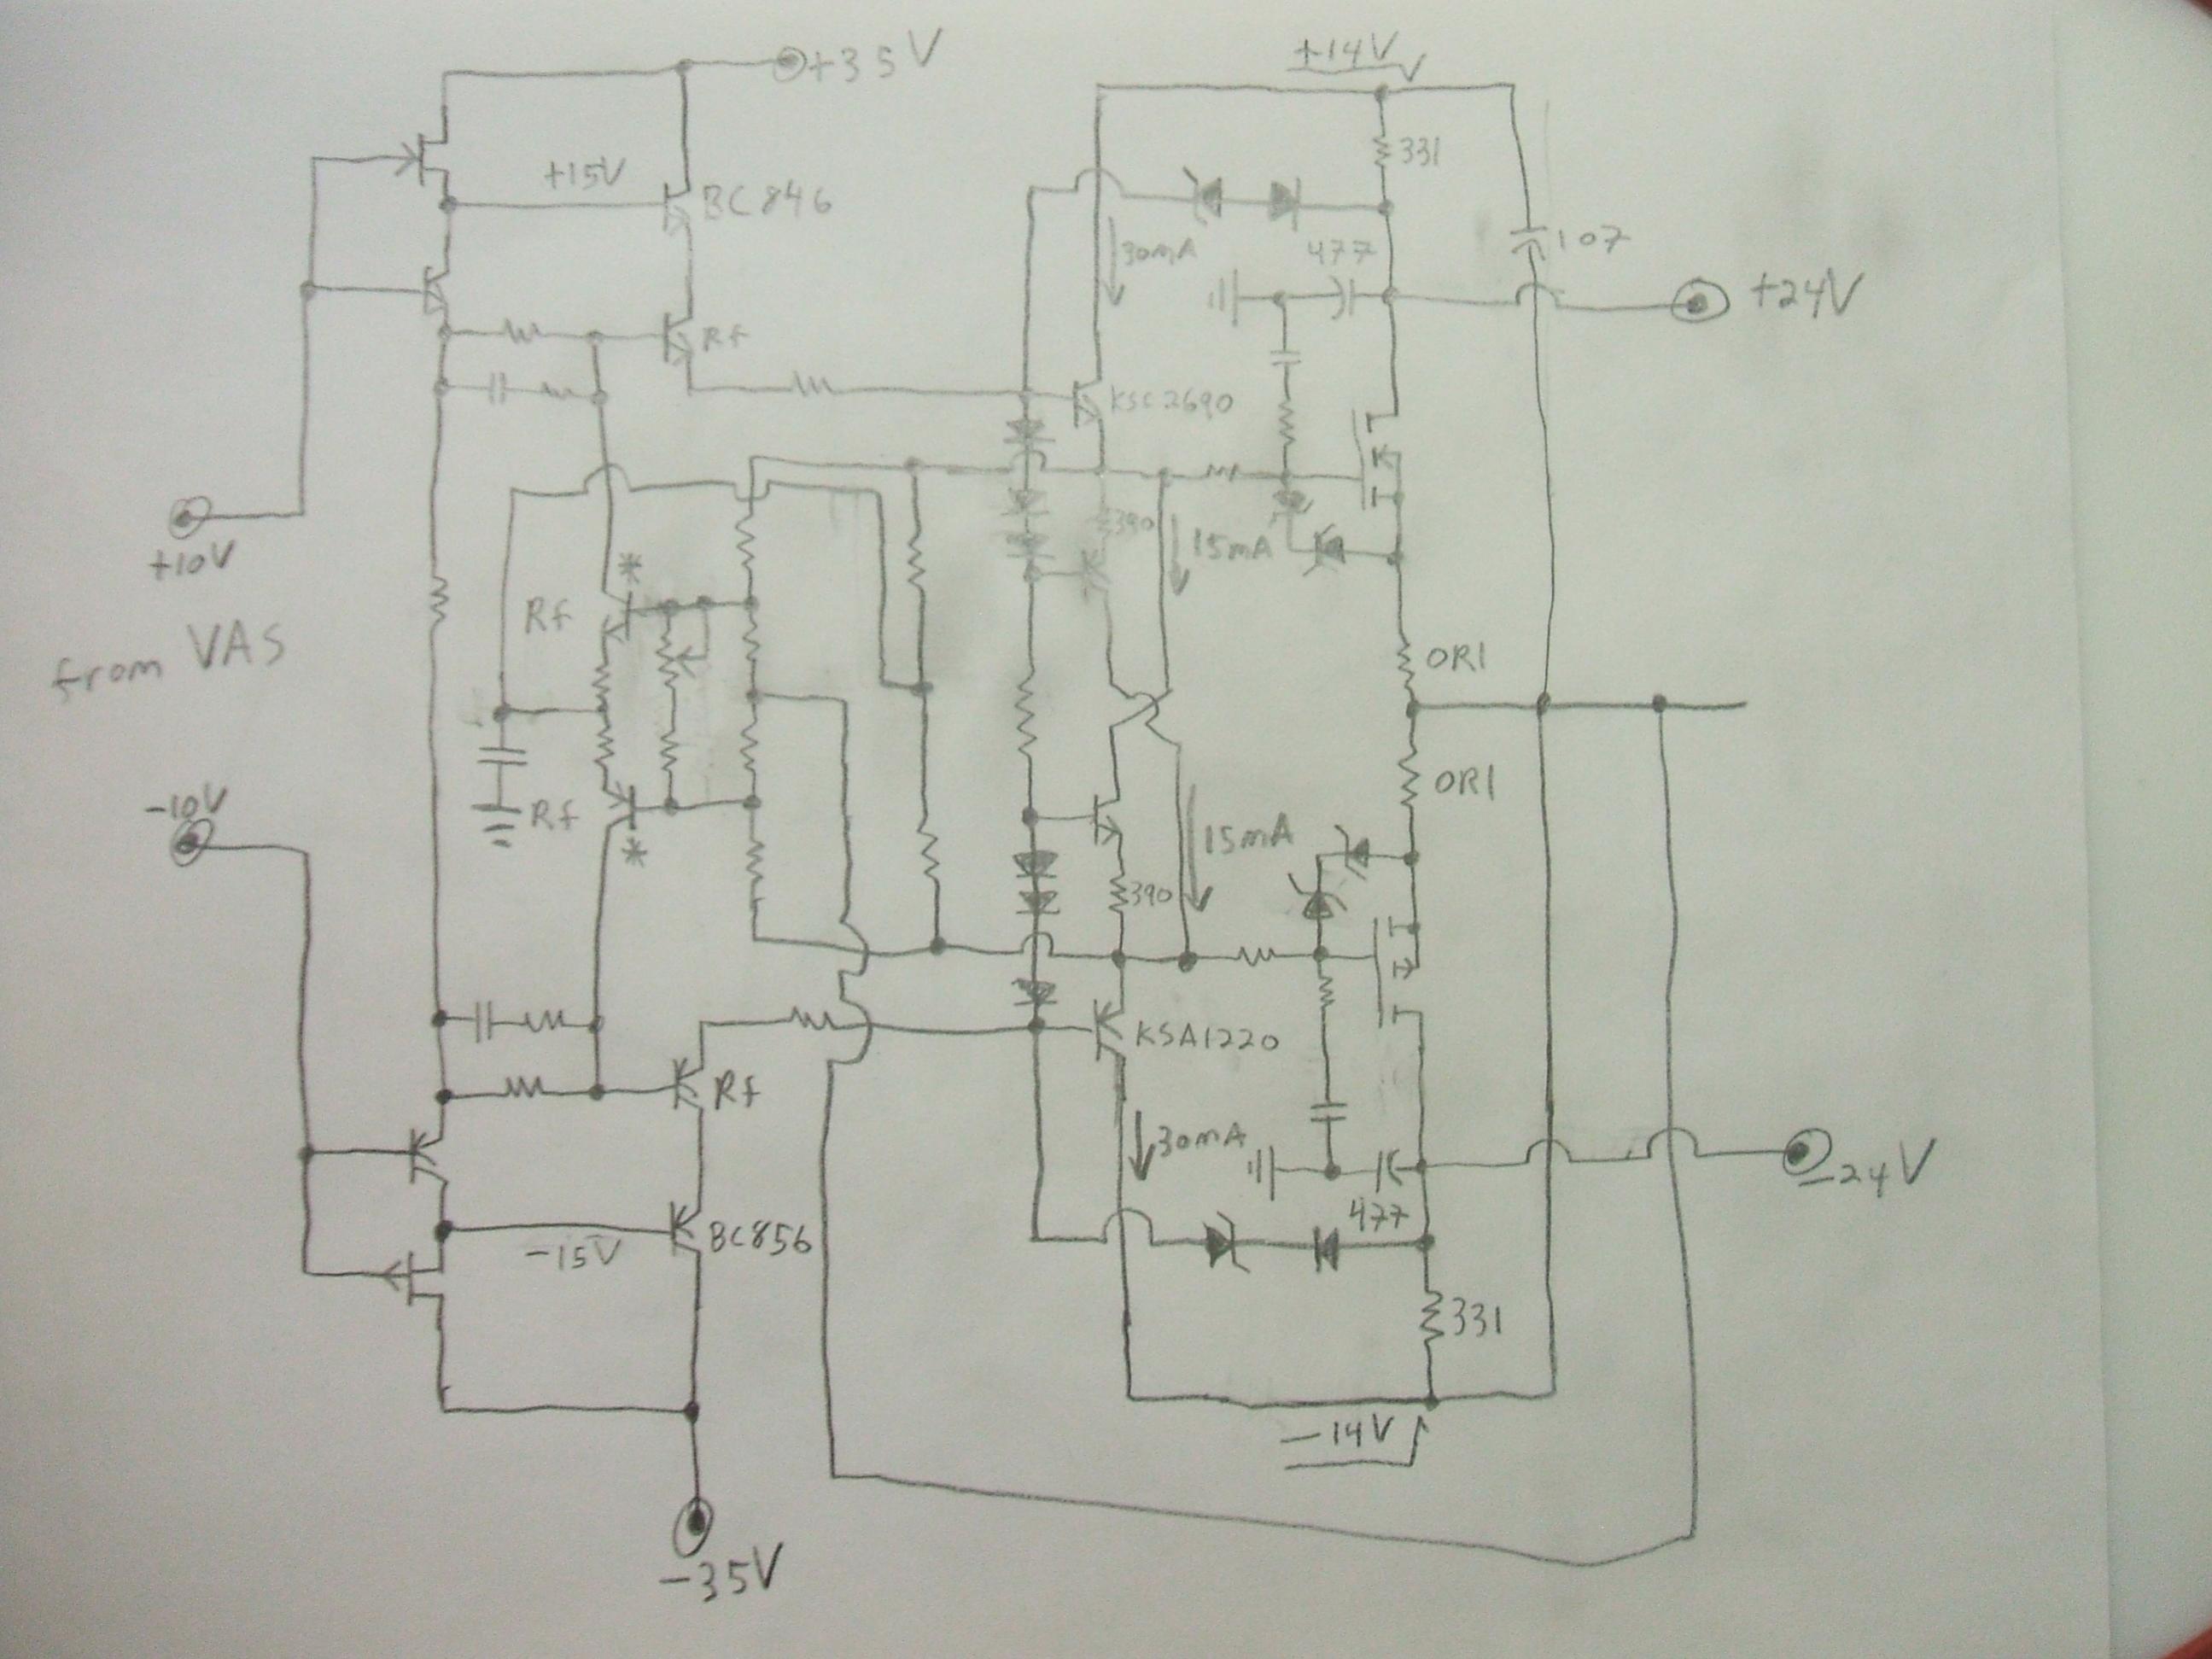 +35V
+14V
331
+15V
BC846
30mA
477
107
+24V
Rf
KSC2690
390
15mA
+10V
*
Rf
from VAS
0R1
0R1
-10V
Rf
*
15mA
390
KSA1220
Rf
30mA
-24V
477
-15V
BC856
331
-14V
-35V